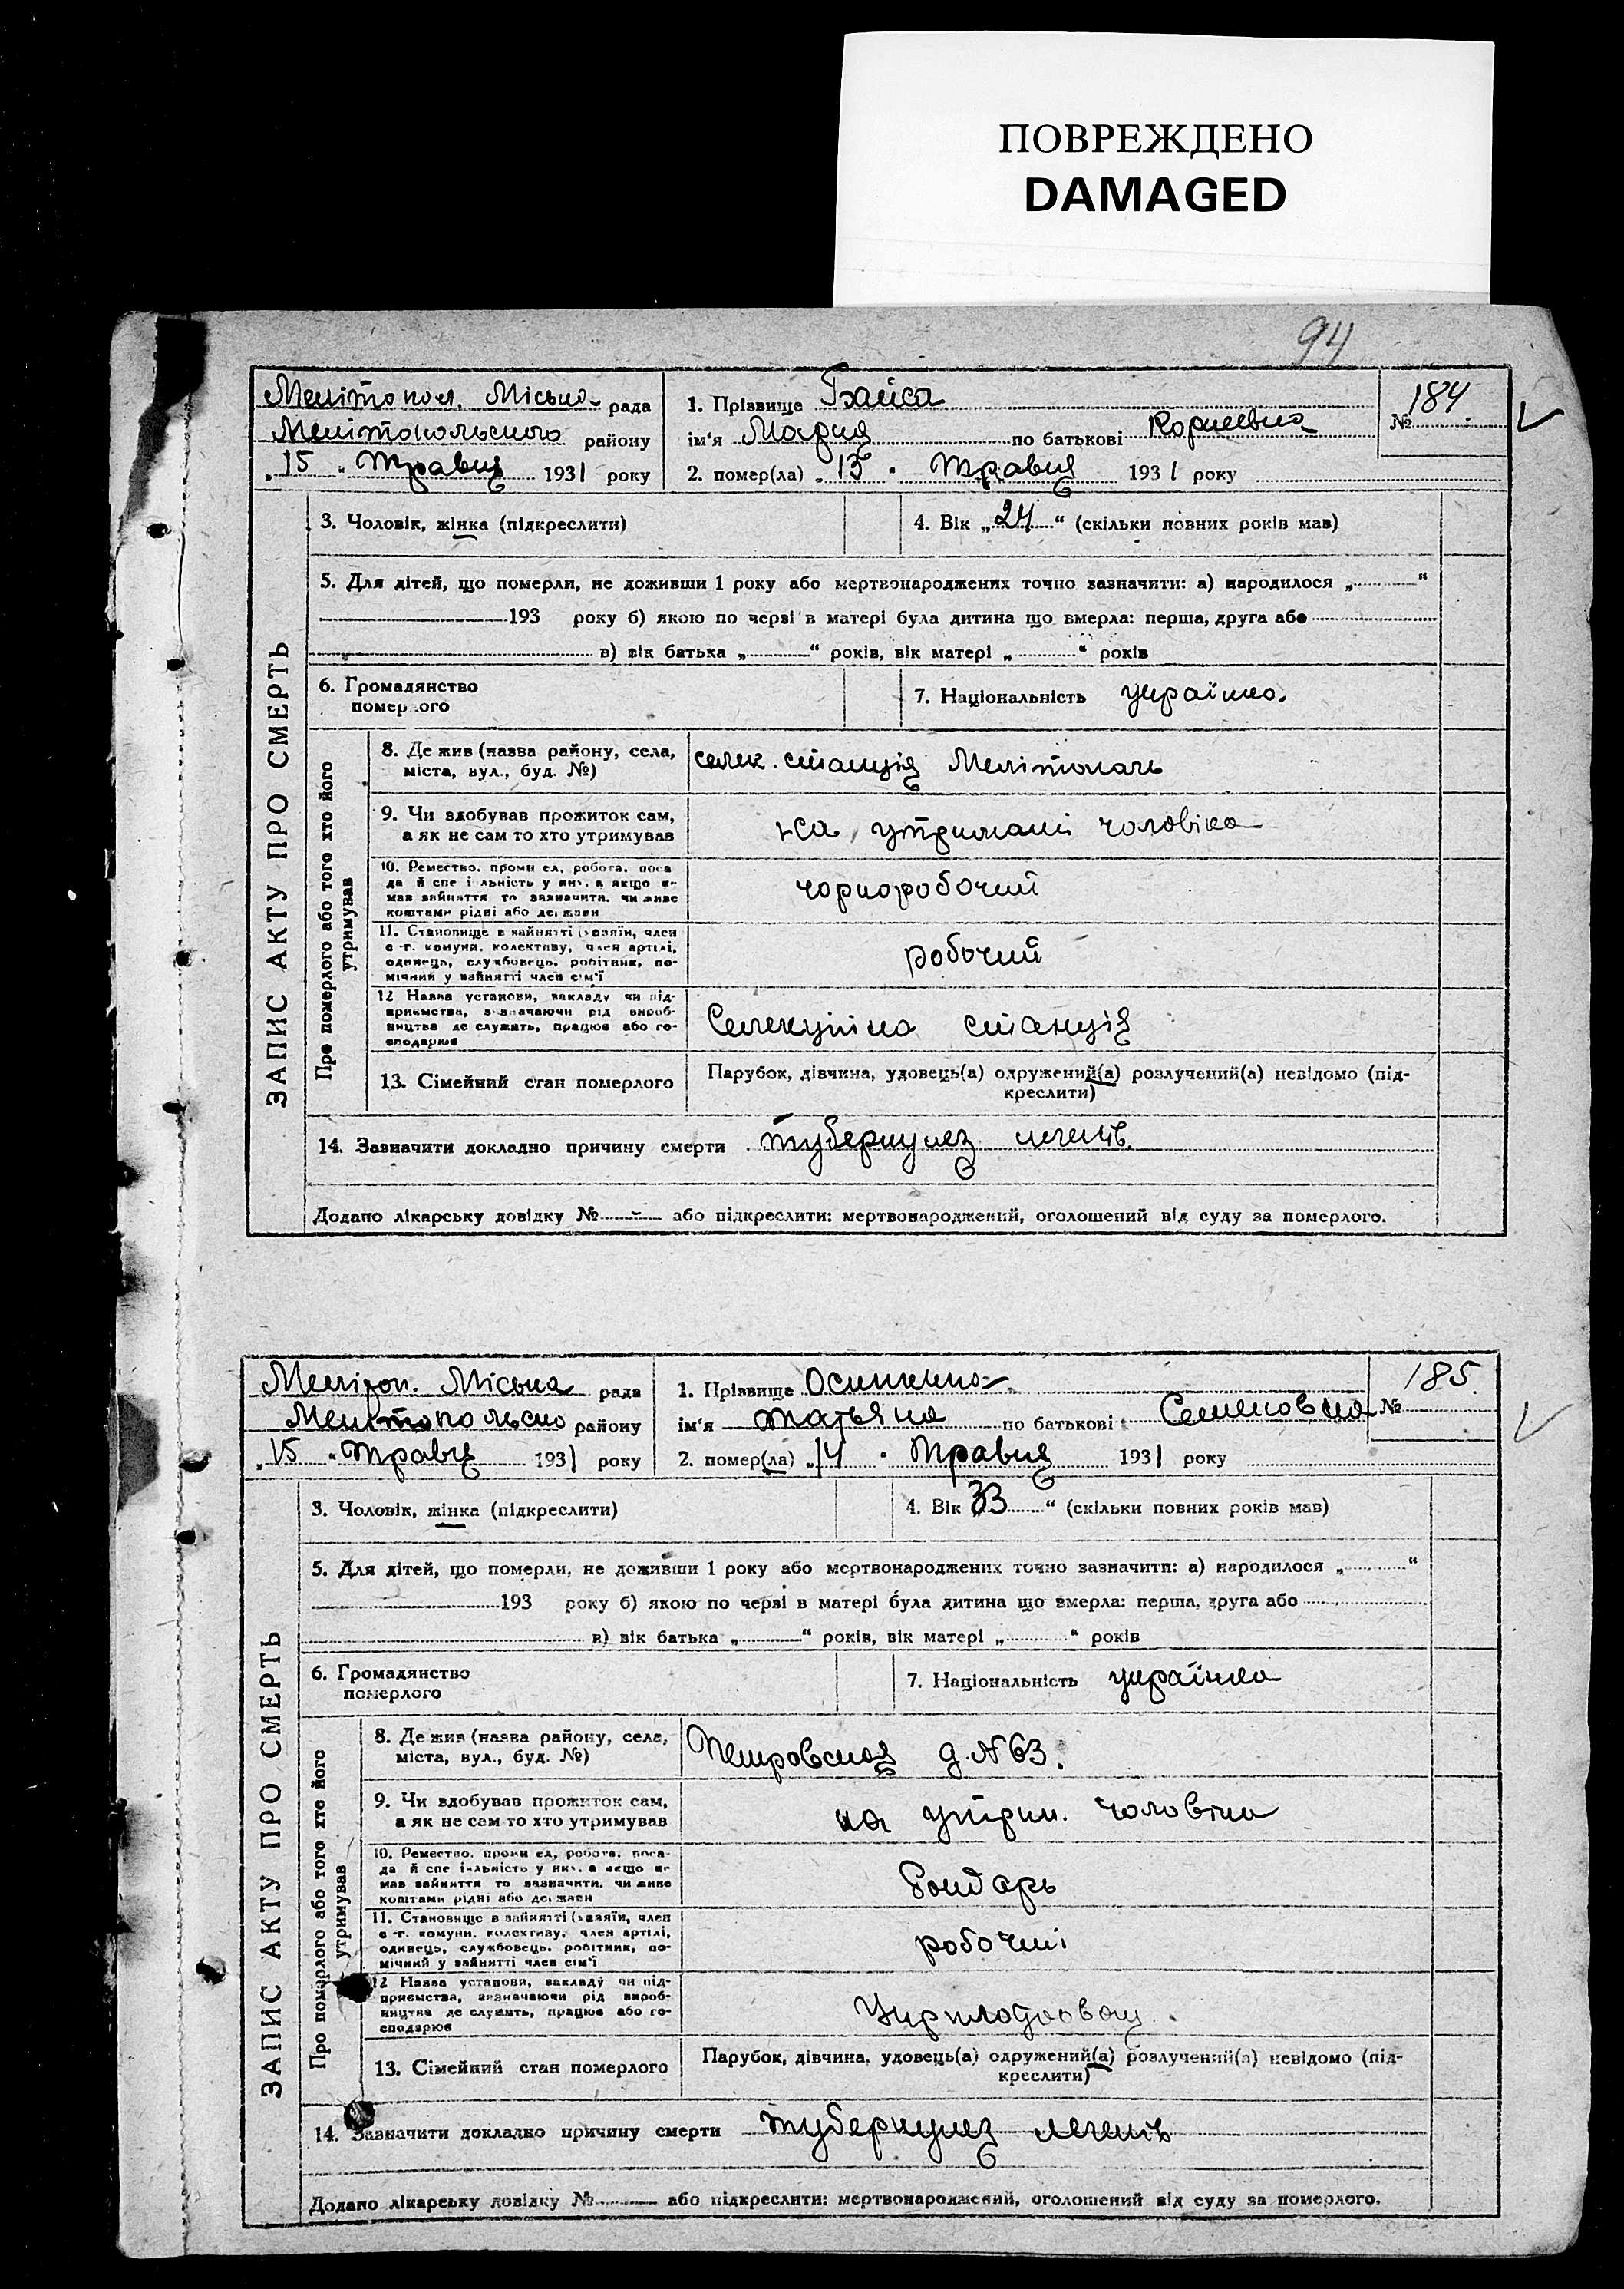 ПОВРЕЖДЕНО
DAMAGED
94
Мелітопол. Міська рада
Мелітопольського району
„15 " Травця 1931 року
1. Прізвище Байса
ім'я Мария по батькові Корнеевна
№ 184.
2. помер(ла) „ 13 " Травця 1931 року
ЗАПИС АКТУ ПРО СМЕРТЬ
3. Чоловік, жінка (підкреслити)
4. Вік „24" (скільки повних років мав)
5. Для дітей, що померли, не доживши 1 року або мертвонароджених точно зазначити: а) народилося „ "
193 року б) якою по черзі в матері була дитина що вмерла: перша, друга або
в) вік батька „ " років, вік матері „ " років
6. Громадянство
померлого
7. Національність українка.
Про померлого або того хто його
утримував
8. Де жив (назва району, села,
міста, вул., буд. №)
селек. станция Мелітополь
9. Чи здобував прожиток сам,
а як не сам то хто утримував
на утриманні чоловіка
10. Ремество, промисел, робота, поса-
да й спеціяльність у них, а якщо не
мав зайняття то зазначити, чи живе
коштами рідні або держави
чорноробочий
11. Становище в зайнятті (хазяїн, член
с.-г. комуни, колективу, член артілі,
одинець, службовець, робітник, по-
мічний у зайнятті член сім'ї
робочий
12 Назва установи, закладу чи під-
приємства, зазначаючи рід вироб-
ництва де служить, працює або го-
сподарює
Селекційна станція
13. Сімейний стан померлого
Парубок, дівчина, удовець(а) одружений(а) розлучений(а) невідомо (під-
креслити)
14. Зазначити докладно причину смерти туберкулез легенів.
Додано лікарську довідку № - або підкреслити: мертвонароджений, оголошений від суду за померлого.
Меліт оп. Міська рада
Мелітопольско району
„15 " Травця 1931 року
1. Прізвище Осипенко
ім'я Татьяна по батькові Семеновна
№ 185.
2. помер(ла) „14 " Травця 1931 року
ЗАПИС АКТУ ПРО СМЕРТЬ
3. Чоловік, жінка (підкреслити)
4. Вік 33 " (скільки повних років мав)
5. Для дітей, що померли, не доживши 1 року або мертвонароджених точно зазначити: а) народилося „ "
193 року б) якою по черзі в матері була дитина що вмерла: перша, друга або
в) вік батька „ " років, вік матері „ " років
6. Громадянство
померлого
7. Національність українка
Про померлого або того хто його
утримував
8. Де жив (назва району, села,
міста, вул., буд. №)
Петровская д. № 63.
9. Чи здобував прожиток сам,
а як не сам то хто утримував
на утрим. чоловіка
10. Ремество, промисел, робота, поса-
да й спеціяльність у них, а якщо не
мав зайняття то зазначити, чи живе
коштами рідні або держави
бондарь
11. Становище в зайнятті (хазяїн, член
с.-г. комуни, колективу, член артілі,
одинець, службовець, робітник, по-
мічний у зайнятті член сім'ї
робочий
12 Назва установи, закладу чи під-
приємства, зазначаючи рід вироб-
ництва де служить, працює або го-
сподарює
13. Сімейний стан померлого
Парубок, дівчина, удовець(а) одружений(а) розлучений(а) невідомо (під-
креслити)
14. Зазначити докладно причину смерти туберкулез легенів
Додано лікарську довідку № або підкреслити: мертвонароджений, оголошений від суду за померлого.